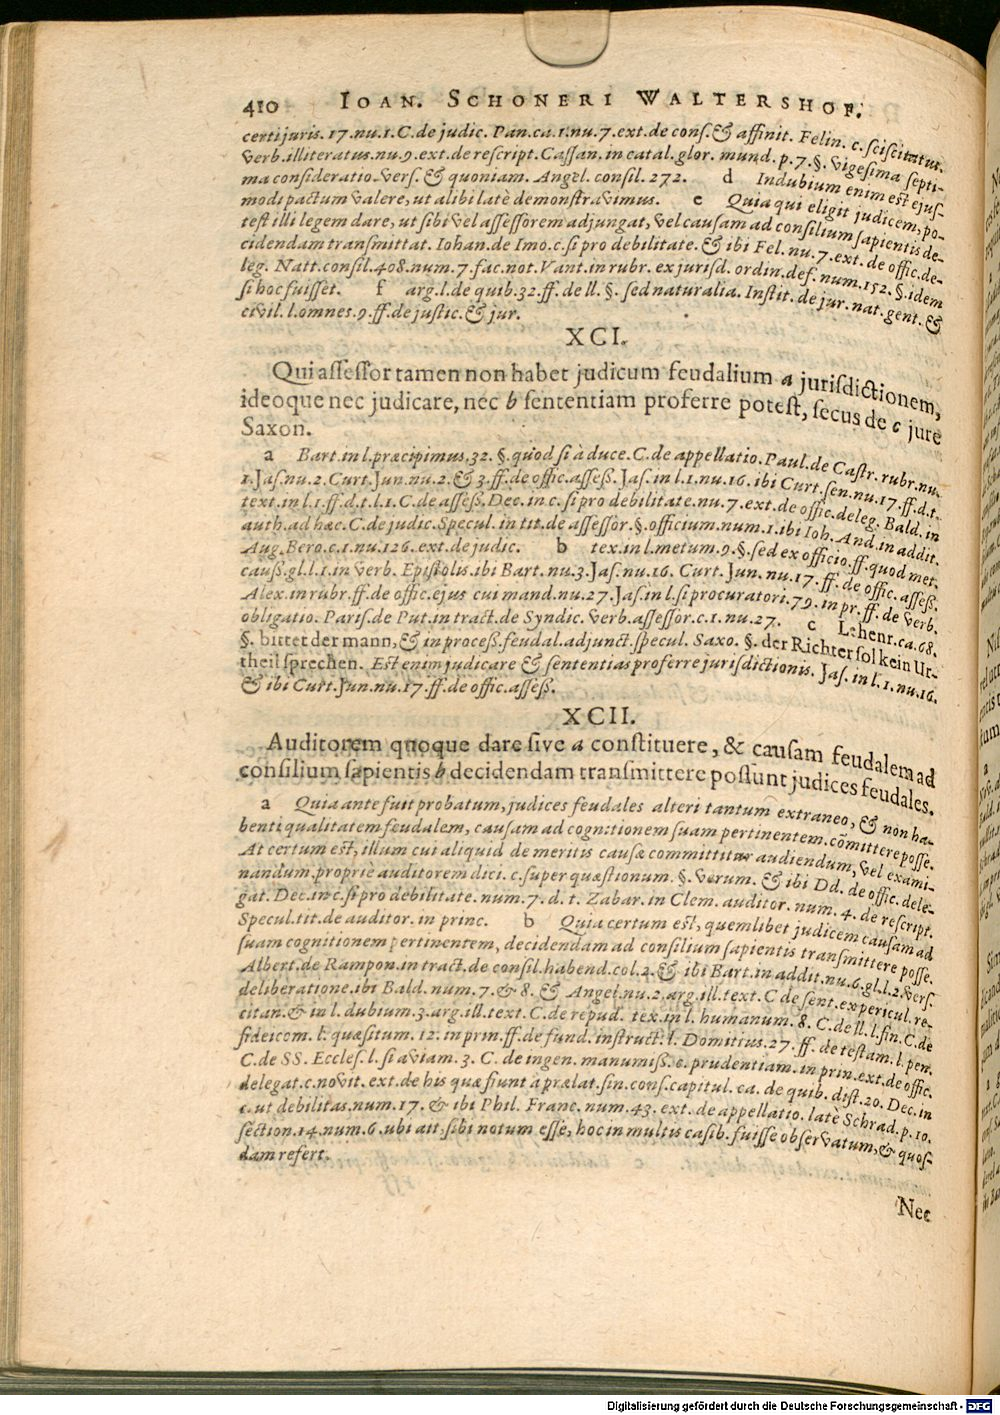 410 IOAN. SCHONERI WALTERSHOF.
certi juris. 17. nu. 1. C. de judic. Pan. ca. 1. nu. 7. ext. de cons. & affinit. Felin. c. sciscitatur.
verb. illiteratus. nu. 9. ext. de rescript. Cassan. in catal. glor. mund. p. 7. §. vigesima septi-
ma consideratio. vers. & quoniam. Angel. consil. 272. d Indubium enim est ejus-
modi pactum valere, ut alibi latè demonstravimus. e Quia qui eligit judicem, po-
test illi legem dare, ut sibi vel assessorem adjungat, vel causam ad consilium sapientis de-
cidendam transmittat. Iohan. de Imo. c. si pro debilitate. & ibi Fel. nu. 7. ext. de offic. de-
leg. Natt. consil. 408. num. 7. fac. not. Vant. in rubr. ex jurisd. ordin. def. num. 152. §. idem
si hoc fuisset. f arg. l. de quib. 32. ff. de ll. §. sed naturalia. Instit. de jur. nat. gent. &
civil. l. omnes. 9. ff. de justic. & jur.
XCI.
Qui assessor tamen non habet judicum feudalium a jurisdictionem,
ideoque nec judicare, nec b sententiam proferre potest, secus de c jure
Saxon.
a Bart. in l. præcipimus. 32. §. quod si à duce. C. de appellatio. Paul. de Castr. rubr. nu.
1. Jas. nu. 2. Curt. Jun. nu. 2. & 3. ff. de offic. assess. Jas. in l. 1. nu. 16. ibi Curt. sen. nu. 17. ff. d. t.
text. in l. 1. ff. d. t. l. 1. C. de assess. Dec. in c. si pro debilitate. nu. 7. ext. de offic. deleg. Bald. in
auth. ad hæc. C. de judic. Specul. in tit. de assessor. §. officium. num. 1. ibi Ioh. And. in addit.
Aug. Bero. c. 1. nu. 126. ext. de judic. b tex. in l. metum. 9. §. sed ex officio. ff. quod met.
causs. gl. l. 1. in verb. Epistolis. ibi Bart. nu. 3. Jas. nu. 16. Curt. Jun. nu. 17. ff. de offic. assess.
Alex. in rubr. ff. de offic. ejus cui mand. nu. 27. Jas. in l. si procuratori. 79. in pr. ff. de verb.
obligatio. Paris. de Put. in tract. de Syndic. verb. assessor. c. 1. nu. 27. c Lehenr. ca. 68.
§. bittet der mann, & in process. feudal. adjunct. specul. Saxo. §. der Richter sol kein Ur-
theil sprechen. Est enim judicare & sententias proferre jurisdictionis. Jas. in l. 1. nu. 16.
& ibi Curt. Jun. nu. 17. ff. de offic. assess.
XCII.
Auditorem quoque dare sive a constituere, & causam feudalem ad
consilium sapientis b decidendam transmittere possunt judices feudales.
a Quia ante fuit probatum, judices feudales alteri tantum extraneo, & non ha-
benti qualitatem feudalem, causam ad cognitionem suam pertinentem. cōmittere posse.
At certum est, illum cui aliquid de meritis causæ committitur audiendum, vel exami-
nandum, propriè auditorem dici. c. super quæstionum. §. verum. & ibi Dd. de offic. dele-
gat. Dec. in c. si pro debilitate. num. 7. d. t. Zabar. in Clem. auditor. num. 4. de rescript.
Specul. tit. de auditor. in princ. b Quia certum est, quemlibet judicem causam ad
suam cognitionem pertinentem, decidendam ad consilium sapientis transmittere posse.
Albert. de Rampon. in tract. de consil. habend. col. 2. & ibi Bart. in addit. nu. 6. gl. l. 2. vers.
deliberatione. ibi Bald. num. 7. & 8. & Angel. nu. 2. arg. ill. text. C de sent. ex pericul. re-
citan. & in l. dubium. 3. arg. ill. text. C. de repud. tex. in l. humanum. 8. C. de ll. l. fin. C. de
fideicom. l. quæsitum. 12. in prin. ff. de fund. instruct. l. Domitius. 27. ff. de testam. l. pen.
C. de SS. Eccles. l. si aviam. 3. C. de ingen. manumiss. c. prudentiam. in prin. ext. de offic.
delegat. c. novit. ext. de his quæ fiunt à prælat. sin. cons. capitul. ca. de quib. dist. 20. Dec. in
c. ut debilitas. num. 17. & ibi Phil. Franc. num. 43. ext. de appellatio. latè Schrad. p. 10.
section. 14. num. 6. ubi ait, sibi notum esse, hoc in multis casib. fuisse observatum, & quos-
dam refert.
Nec
Digitalisierung gefördert durch die Deutsche Forschungsgemeinschaft - DFG